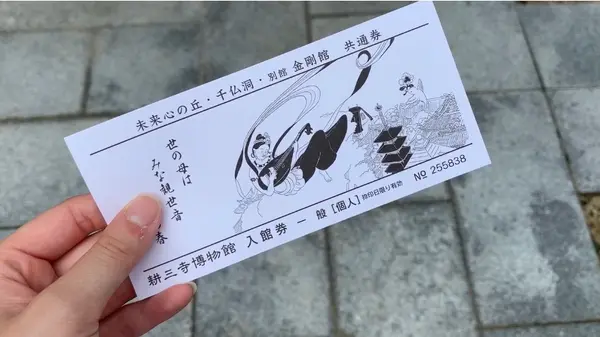 未来心の丘・千仏洞・別館 金剛館 共通券
世の母は
みな観世音
春
耕三寺博物館 入館券 一般 [個人] 捺印日限り有効 № 255838